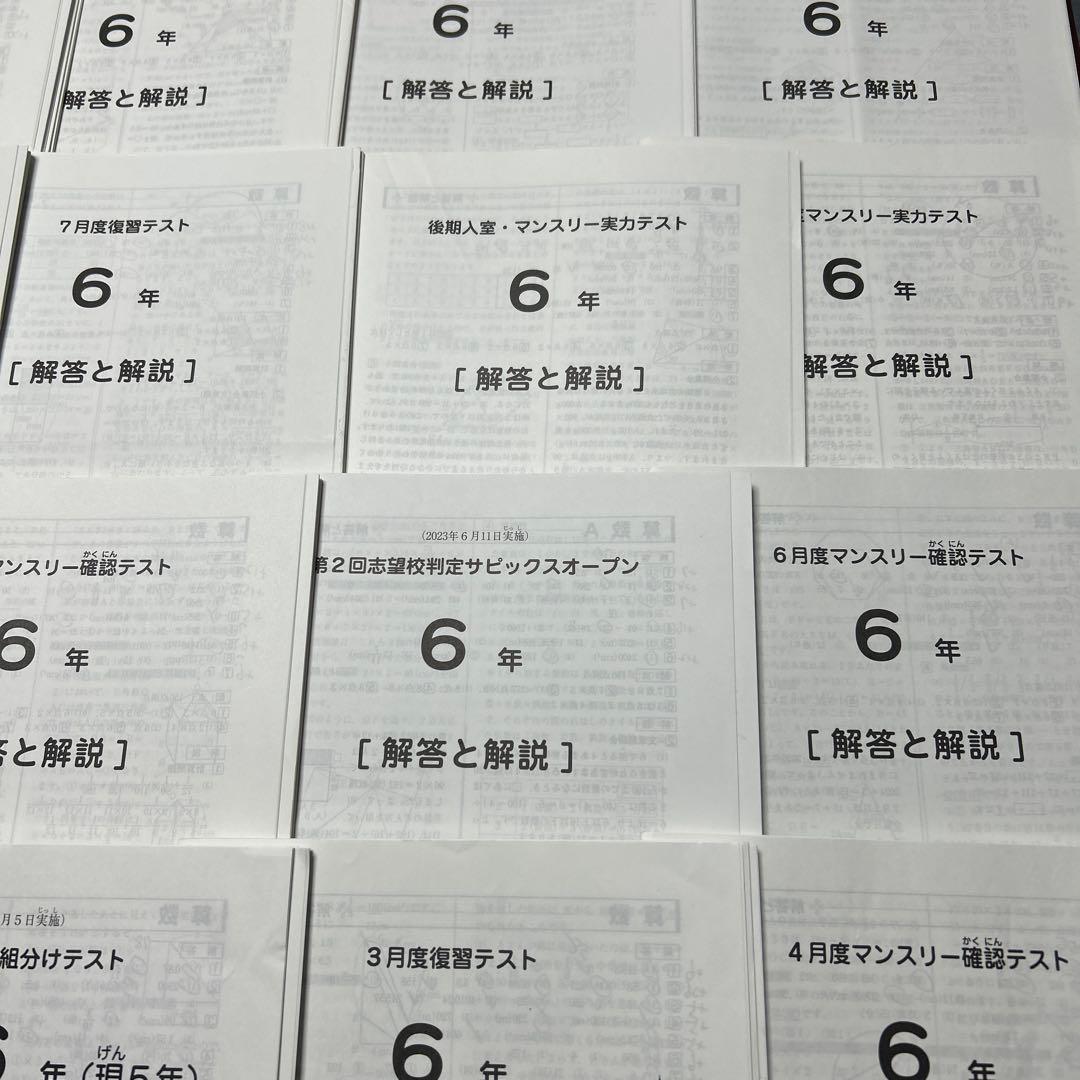 6 年
解答と解説 ]
6 年
[ 解答と解説 ]
6 年
[ 解答と解説 ]
7月度復習テスト
6 年
[ 解答と解説 ]
後期入室・マンスリー実力テスト
6 年
[ 解答と解説 ]
マンスリー実力テスト
6 年
解答と解説 ]
かくにん
ンスリー確認テスト
6 年
答と解説 ]
じっし
(2023年6月11日実施)
第2回志望校判定サピックスオープン
6 年
[ 解答と解説 ]
かくにん
6月度マンスリー確認テスト
6 年
[ 解答と解説 ]
じっし
月5日実施)
組分けテスト
げん
年(現5年)
3月度復習テスト
6 年
かくにん
4月度マンスリー確認テスト
6 年